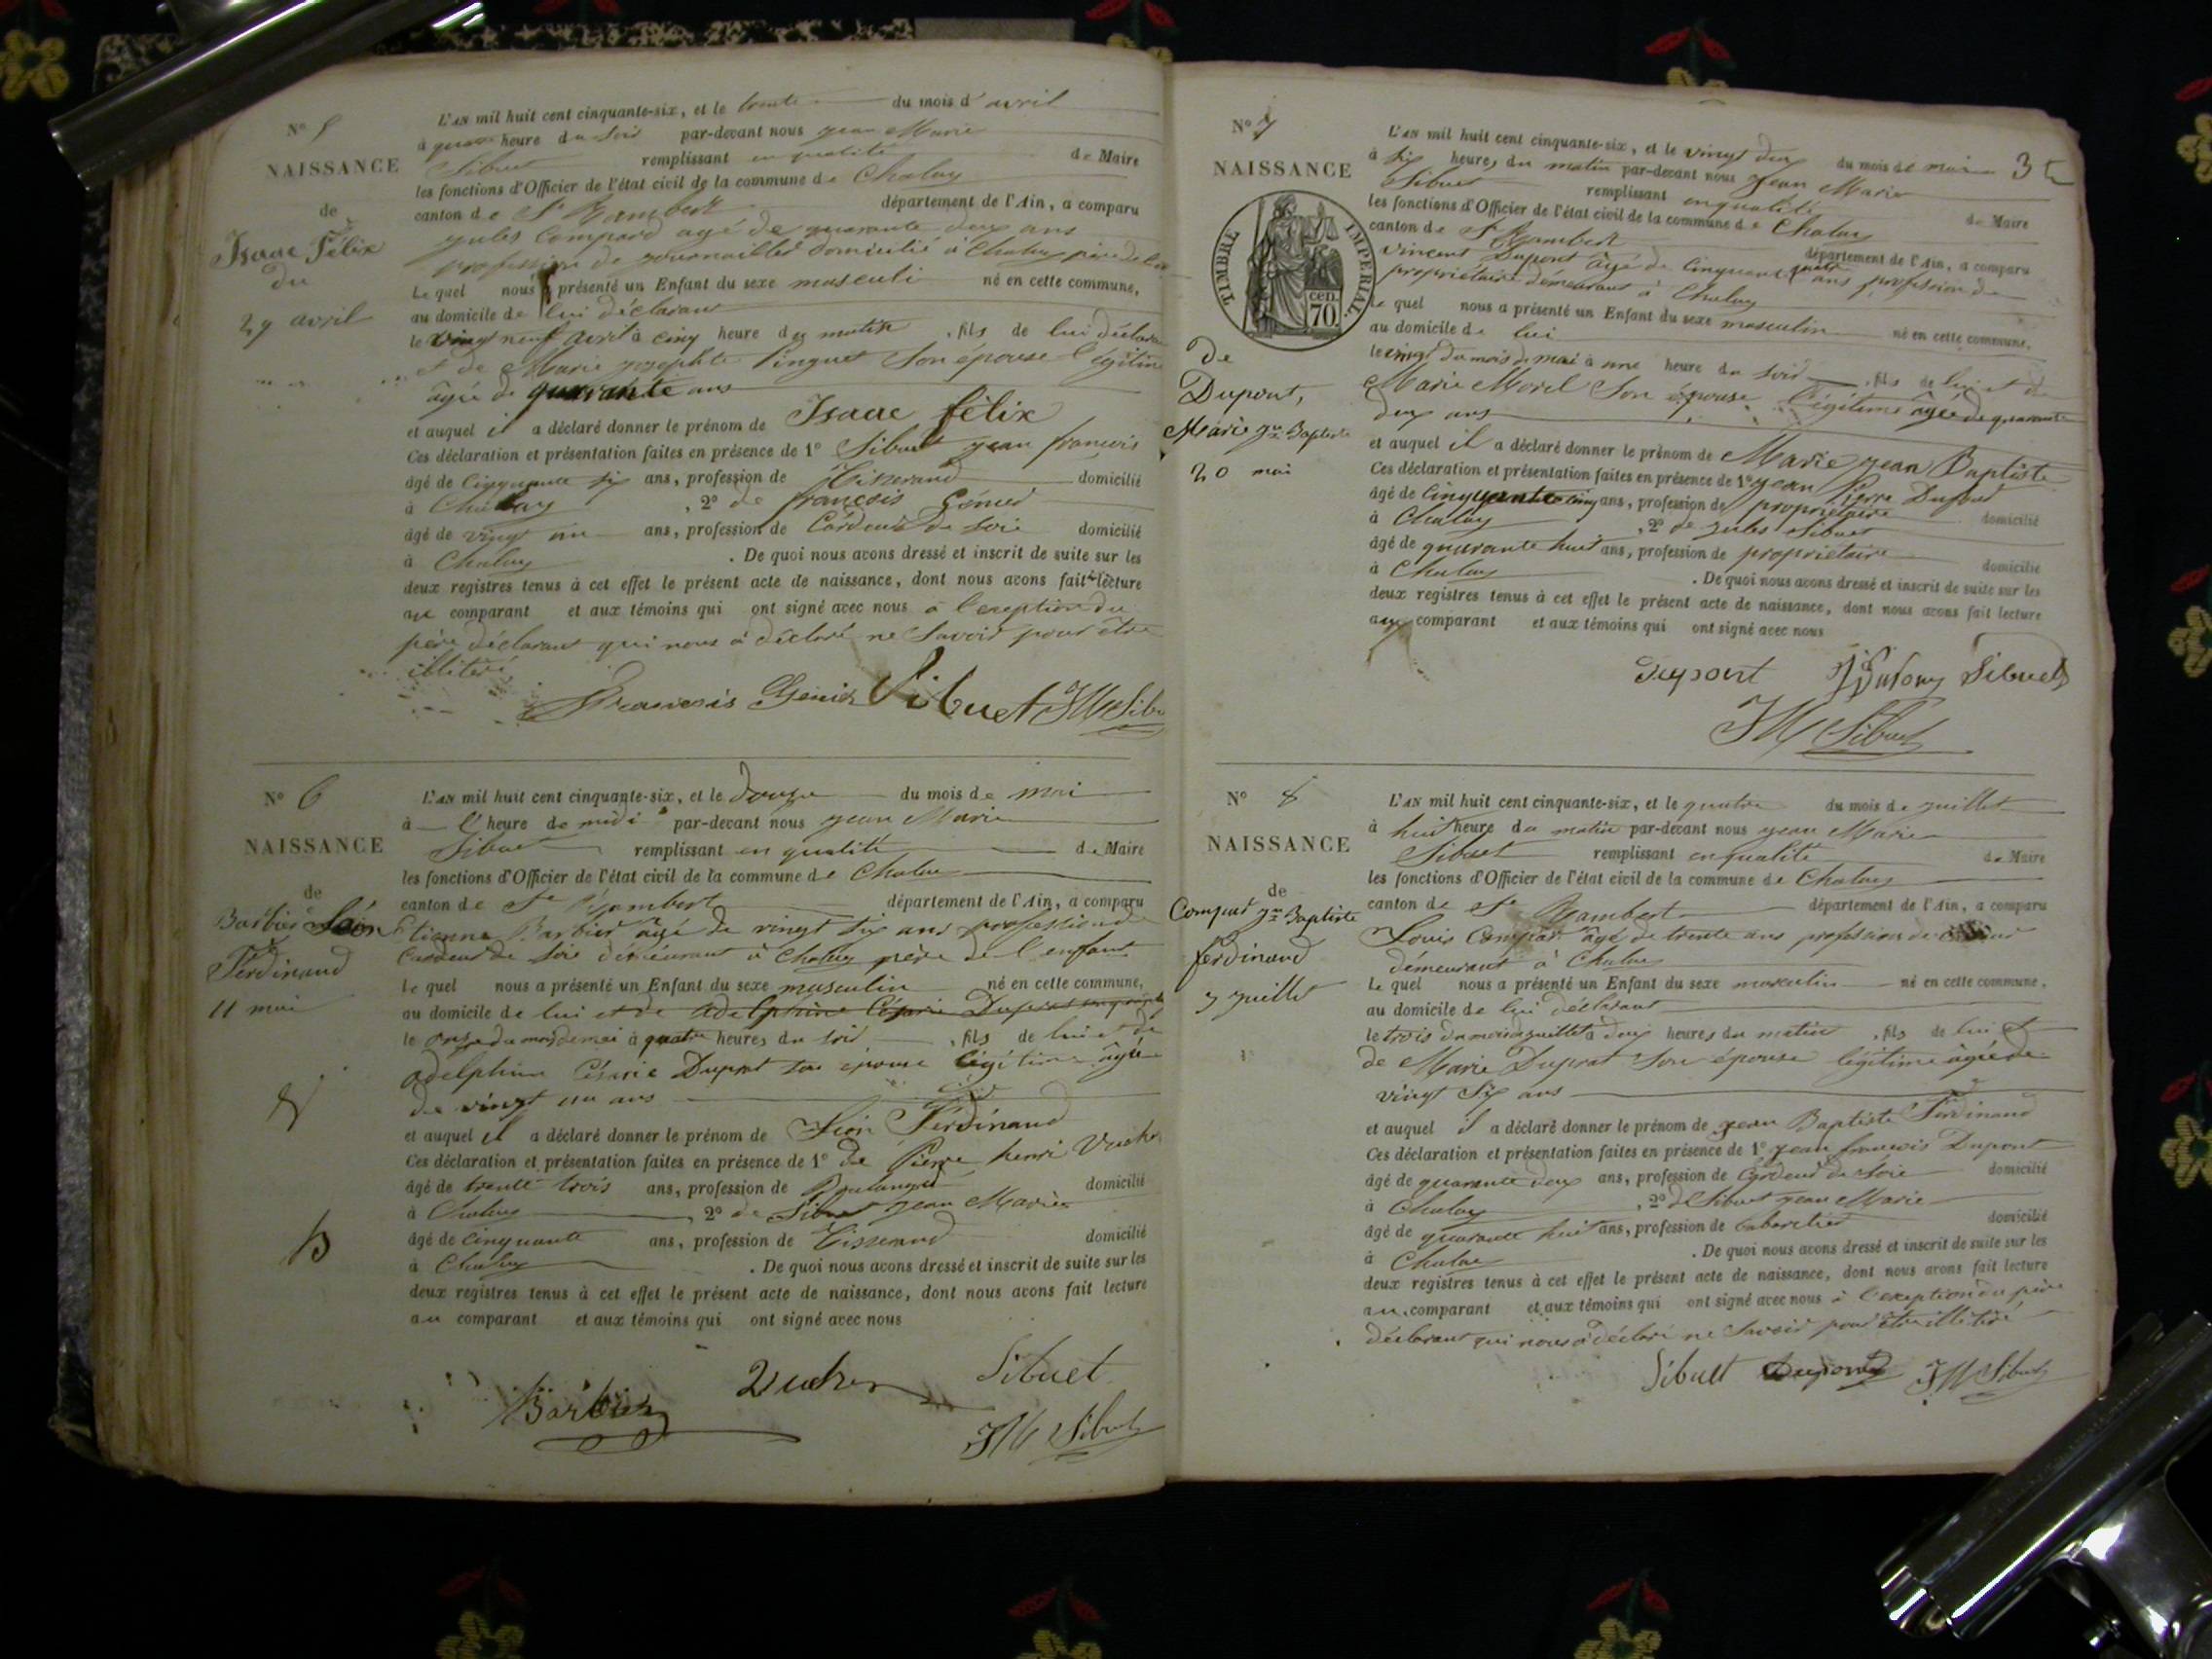 N° 5
NAISSANCE
de
Isaac Félix
du
29 avril
L'AN mil huit cent cinquante-six, et le trente du mois d'avril
à quatre heure du soir par-devant nous jean Marie
Sibuet remplissant en qualité de Maire
les fonctions d'Officier de l'état civil de la commune de Chaley
canton de St Rambert département de l'Ain, a comparu
jules Compard agé de quarante deux ans
profession de journaillier domicilié à Chaley père de
Le quel nous présenté un Enfant du sexe masculi né en cette commune,
au domicile de lui déclarant
le vingt neuf avril à cinq heure du matin, fils de lui déclarant
et de Marie josephte Pinguet Son épouse légitime
âgée de quarante ans
et auquel il a déclaré donner le prénom de Isaac félix
Ces déclaration et présentation faites en présence de 1° Sibuet jean francois
âgé de Cinquante six ans, profession de Tisserand domicilié
à Chaley, 2° de françois Génier
âgé de vingt un ans, profession de Cardeur de Soie domicilié
à Chaley. De quoi nous avons dressé et inscrit de suite sur les
deux registres tenus à cet effet le présent acte de naissance, dont nous avons fait lecture
au comparant et aux témoins qui ont signé avec nous à l'exception du
père déclarant qui nous à déclaré ne Savoir pour être
illitéré
Francois Genier Sibuet JM Sibu
N° 6
NAISSANCE
de
Barbier Léon
Ferdinand
11 mai
L'AN mil huit cent cinquante-six, et le douze du mois de mai
à l'heure de midi par-devant nous jean Marie
Sibuet remplissant en qualité de Maire
les fonctions d'Officier de l'état civil de la commune de Chaley
canton de St Rambert département de l'Ain, a comparu
Etienne Barbier âgé de vingt six ans profession de
Cardeur de Soie démeurant à Chaley père de l'enfant
Le quel nous a présenté un Enfant du sexe masculin né en cette commune,
au domicile de lui et de adelphine Césarie Dupont
le onze du mois de mai à quatre heures du soir, fils de lui et de
adelphine Césarie Dupont son épouse légitime âgée
de vingt un ans
et auquel il a déclaré donner le prénom de Léon Ferdinand
Ces déclaration et présentation faites en présence de 1° de Pierre henri Vucher
âgé de trente trois ans, profession de Boulanger domicilié
à Chaley, 2° de Sibuet jean Marie
âgé de cinquante ans, profession de Tisserand domicilié
à Chaley. De quoi nous avons dressé et inscrit de suite sur les
deux registres tenus à cet effet le présent acte de naissance, dont nous avons fait lecture
au comparant et aux témoins qui ont signé avec nous
Barbier Vucher Sibuet
JM Sibuet
N° 7
NAISSANCE
TIMBRE IMPERIAL
70 cen.
de
Dupont,
Marie jn Baptiste
20 mai
L'AN mil huit cent cinquante-six, et le vingt deux du mois de mai
à six heures du matin par-devant nous jean Marie
Sibuet remplissant en qualité de Maire
les fonctions d'Officier de l'état civil de la commune de Chaley
canton de St Rambert département de l'Ain, a comparu
Vincent Dupont âgé de Cinquante quatre ans profession de
propriétaire démeurant à Chaley
Le quel nous a présenté un Enfant du sexe masculin né en cette commune,
au domicile de lui
le vingt du mois de mai à une heure du soir, fils de lui et de
Marie Morel Son épouse légitime âgée de quarante
deux ans
et auquel il a déclaré donner le prénom de Marie jean Baptiste
Ces déclaration et présentation faites en présence de 1° jean Pierre
âgé de Cinquante cinq ans, profession de propriétaire domicilié
à Chaley, 2° de jules Sibuet
âgé de quarante huit ans, profession de propriétaire domicilié
à Chaley. De quoi nous avons dressé et inscrit de suite sur les
deux registres tenus à cet effet le présent acte de naissance, dont nous avons fait lecture
au comparant et aux témoins qui ont signé avec nous
Dupont Sibuet
JM Sibuet
N° 8
NAISSANCE
de
Compard jn Baptiste
ferdinand
3 juillet
L'AN mil huit cent cinquante-six, et le quatre du mois de juillet
à huit heure du matin par-devant nous jean Marie
Sibuet remplissant en qualité de Maire
les fonctions d'Officier de l'état civil de la commune de Chaley
canton de St Rambert département de l'Ain, a comparu
Louis Compar âgé de trente ans profession de
démeurant à Chaley
Le quel nous a présenté un Enfant du sexe masculin né en cette commune,
au domicile de lui déclarant
le trois du mois juillet à deux heures du matin, fils de lui et
de Marie Dupont Son épouse légitime âgée de
vingt Six ans
et auquel il a déclaré donner le prénom de jean Baptiste Ferdinand
Ces déclaration et présentation faites en présence de 1° jean francois Dupont
âgé de quarante deux ans, profession de Cardeur de Soie domicilié
à Chaley, 2° de Sibuet jean Marie
âgé de quarante huit ans, profession de Cabaretier domicilié
à Chaley. De quoi nous avons dressé et inscrit de suite sur les
deux registres tenus à cet effet le présent acte de naissance, dont nous avons fait lecture
au comparant et aux témoins qui ont signé avec nous à l'exception du père
déclarant qui nous à déclaré ne Savoir pour être illitéré
Sibuet Dupont JM Sibuet